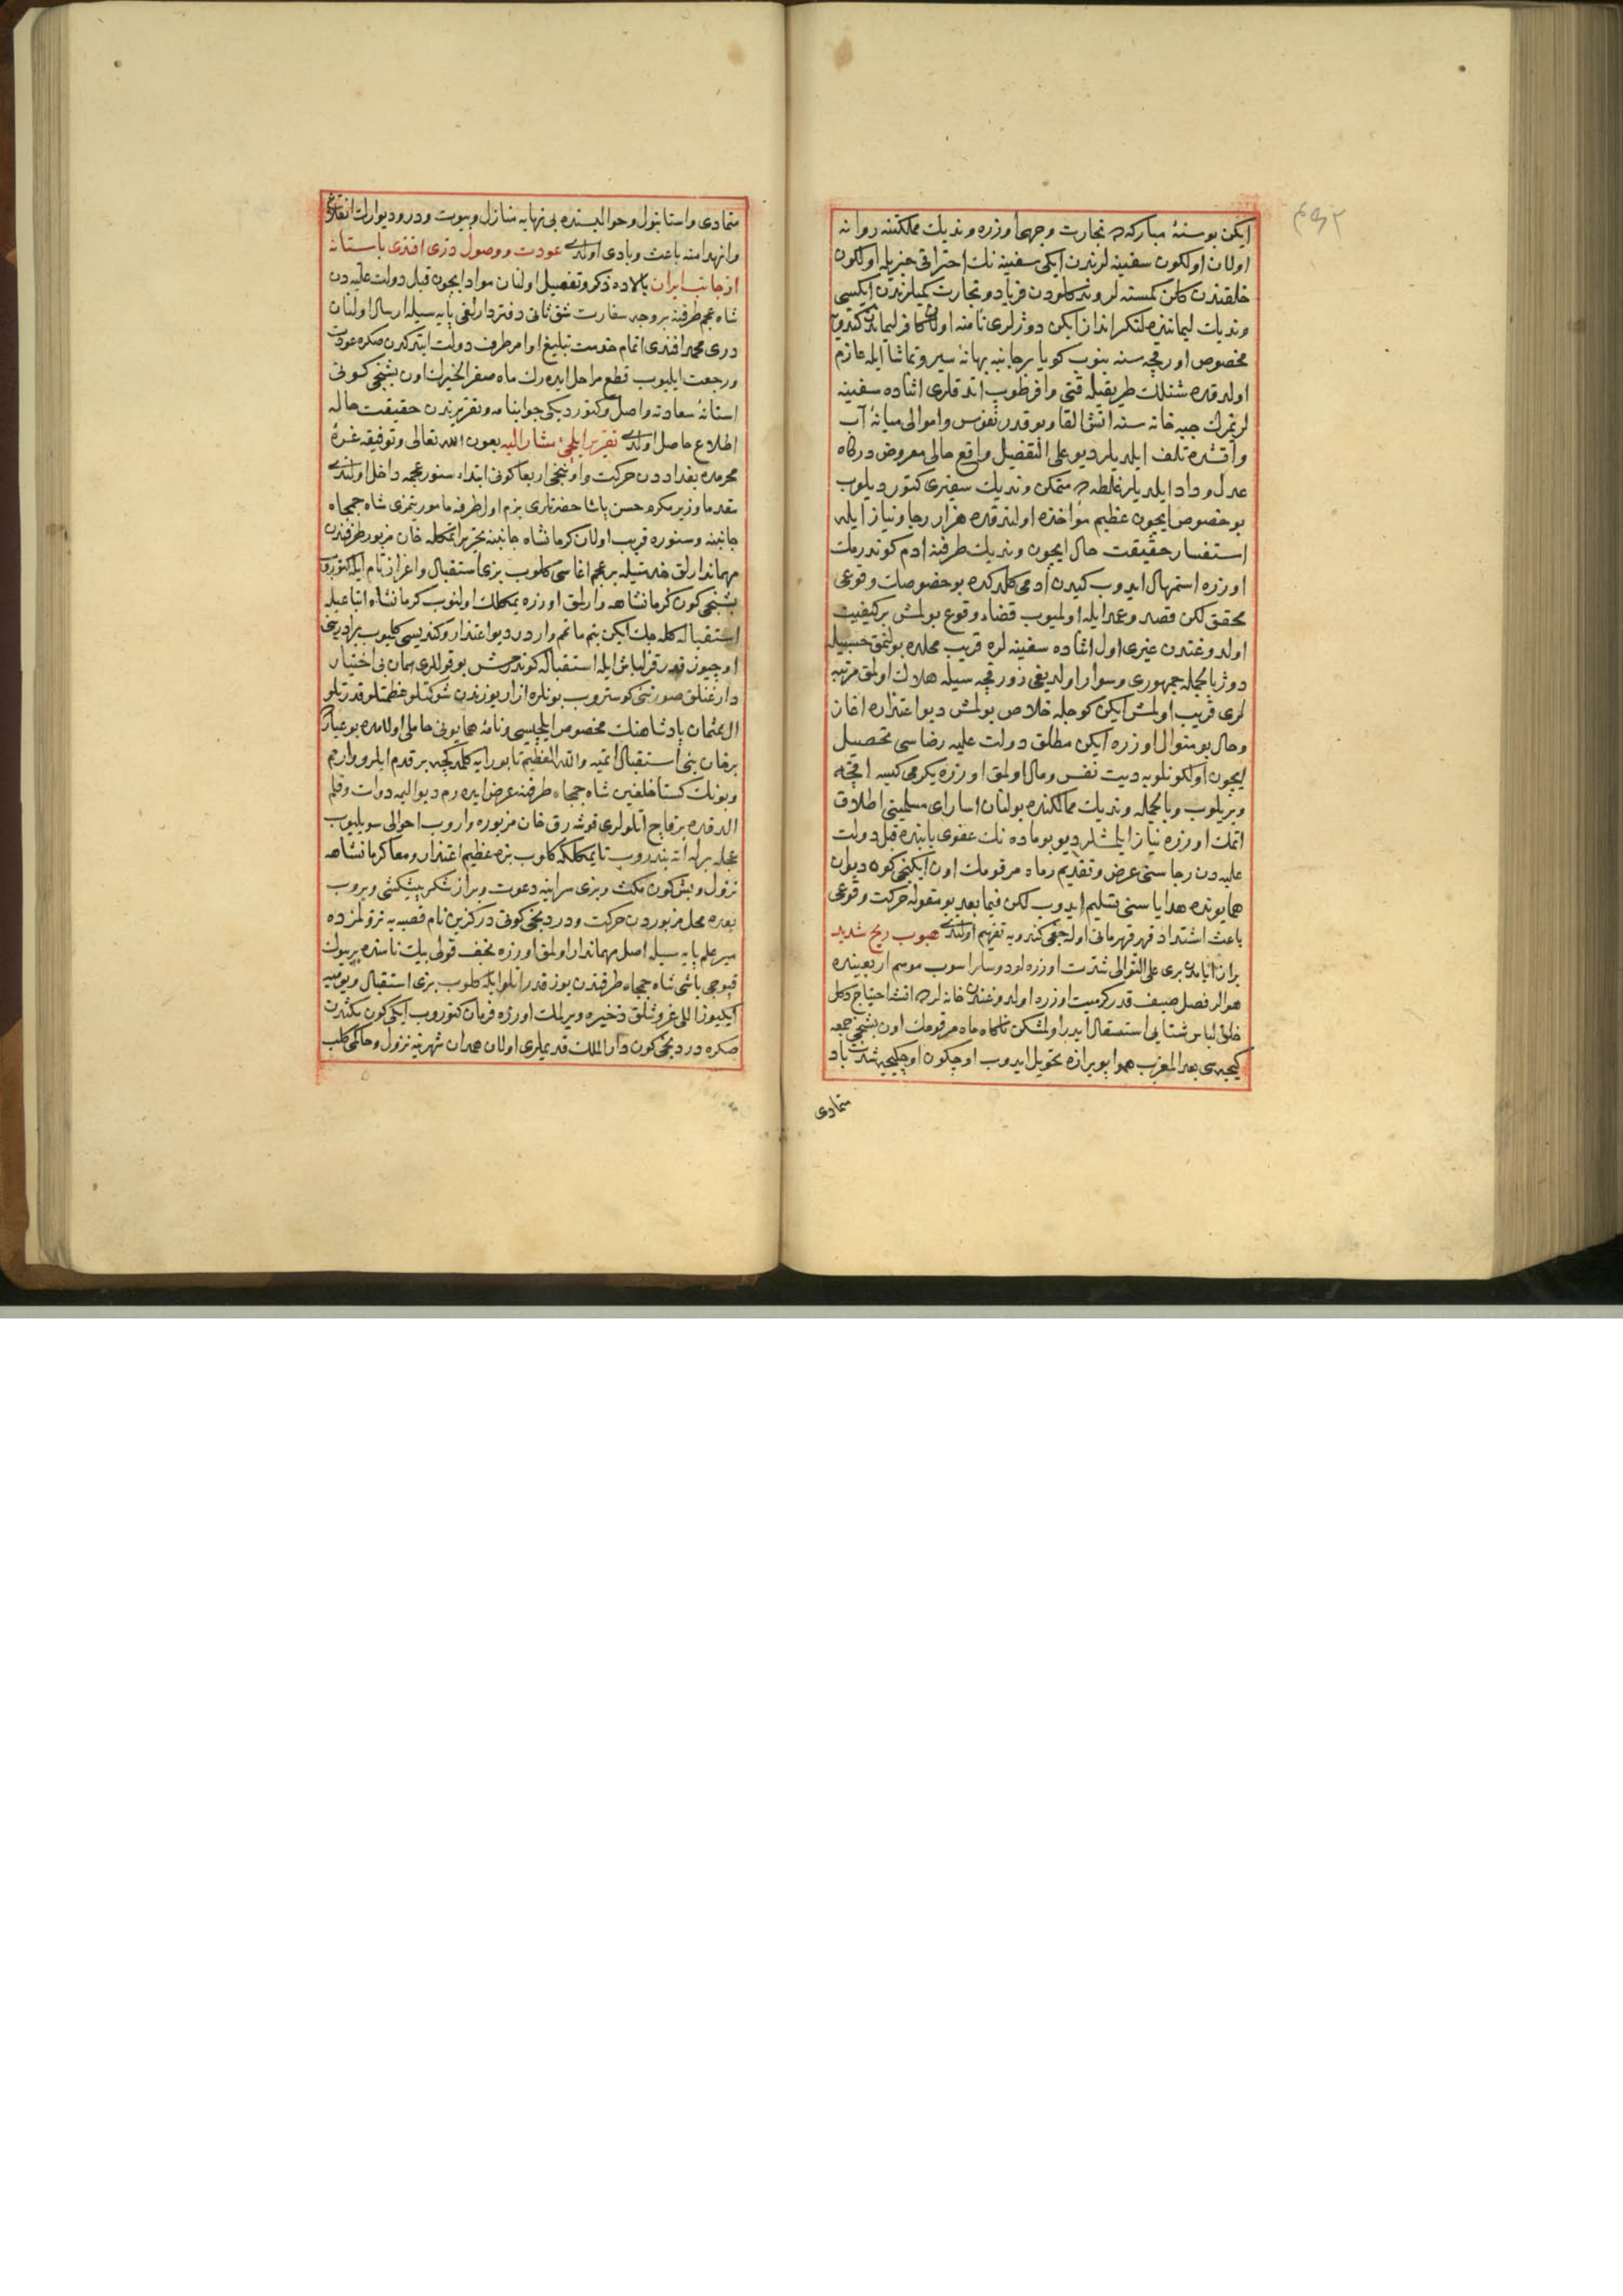 ایکن بو سنۀ مبارکه‌ده تجارت وجهی اوزره وندیك مملکتنه روانه
اولان اولکون سفینه لرندن ایکی سفینه نك احتراقی خبریله اولکون
خلقندن کلن کمسنه لر وندکلودن فریاد و تجارت کمیلرندن ایکیسی
وندیك لیماننده لنکرانداز ایکن دوژلری نامنه اولان کافر لیماندن کندویه
مخصوص اورفچه سنه بنوب کویا بر جانبه بهانۀ سیر و تماشا ایله عازم
اولدقده شنلك طریقیله قتی وافر طوب اتدقلری اثناده سفینه
لریمزك جبه خانه سنه اتش القا و بو قدر نفوس و اموالی میانۀ آب
و اتشده تلف ایلدیلر دیو علی التفصیل واقع حالی معروض درکاه
عدل و داد ایلدیلر غلطه‌ده متمکن وندیك سفیری کتوردیلوب
بو خصوص ایچون عظیم مؤاخذه اولندقده هزار رجا و نیاز ایله
استفسار حقیقت حال ایچون وندیك طرفنه ادم کوندرمك
اوزره استمهال ایدوب کیدن ادمی کلدکده بو خصوصك وقوعی
محقق لکن قصد و عمد ایله اولمیوب قضاء وقوع بولمش بر کیفیت
اولدوغندن غیری اول اثناده سفینه لره قریب محلده بولنمق حسبیله
دوژ بالجمله جمهوری و سوار اولدیغی زورقچه سیله هلاك اولمق مرتبه
لری قریب اولمش ایکن کوجله خلاص بولمش دیو اعتذاره اغاز
و حال بو منوال اوزره ایکن مطلق دولت علیه رضاسی تحصیل
ایچون اولکونلویه دیت نفس و مال اولمق اوزره یکرمی کیسه اقچه
ویریلوب و بالجمله وندیك ممالکنده بولنان اسارای مسلمینی اطلاق
اتمك اوزره نیاز ایلمشلر دیو بو ماده نك عفوی بابنده قبل دولت
علیه دن رجاسنی عرض و تقدیم و ماه مرقومك اون ایکنجی کونی دیوان
همایونده هدایاسنی تسلیم ایدوب لکن فیما بعد بو مقوله حرکت وقوعی
باعث اشتداد قهر قهرمانی اوله جغی کندویه تفهیم اولندی هبوب ریح شدید
بر ان ایامدنبری علی التوالی شدت اوزره لودوسلر اسوب موسم اربعینده
هوالر فصل صیف قدر کرمیت اوزره اولدوغندن خانه لرده اتشه احتیاج دکل
خلق لباس شتایی استثقال ایدر اولمشکن ناکاه ماه مرقومك اون بشنجی جمعه
کیجه سی بعد المغرب هوا پویرازه تحویل ایدوب اوچکون اوچکیجه شدت باد
متمادی
متمادی و استانبول و حوالیسنده بی نهایه منازل و بیوت و در و دیوارك انقلاع
و انهدامنه باعث و بادی اولدی عودت و وصول دری افندی باستانه
از جانب ایران بالاده ذکر و تفصیل اولنان مواد ایچون قبل دولت علیه دن
شاه عجم طرفنه بر وجه سفارت شق ثانی دفتردارلغی پایه سیله ارسال اولنان
دری محمد افندی اتمام خدمت تبلیغ اوامر طرف دولت ایتدکدن صکره عودت
و رجعت ایلیوب قطع مراحل ایده رك ماه صفر الخیرك اون بشنجی کونی
استانۀ سعادته واصل و کتوردیکی جوابنامه و تقریرندن حقیقت حاله
اطلاع حاصل اولدی تقریر ایلچئ مشار الیه بعون الله تعالی و توفیقه غرۀ
محرمده بغداددن حرکت و اونجی اربعا کونی ابتداء سنور عجمه داخل اولندی
مقدما وزیر مکرم حسن پاشا حضرتلری بزم اول طرفه مامور یتمزی شاه جمجاه
جانبنه و سنوره قریب اولان کرمانشاه جانبنه تحریر اتمکله خان مزبور طرفندن
مهماندارلق خدمتیله بر عجم اغاسی کلوب بزی استقبال و اعزاز تام ایله کتوروب
بشنجی کون کرمانشاهه وارلمق اوزره یمکلك اولنوب کرمانشاه اتباعیله
استقباله کله جك ایکن بنم ماتمم واردر دیو اعتذار و کندیسی کلیوب برادرینی
اوچیوز قدر قزلباش ایله استقباله کوندرمش بو قوللری همان بی اختیار
دارغنلق صورتنی کوستروب بونلره ازار یوزندن شوکتلو عظمتلو قدرتلو
ال عثمان پادشاهنك مخصوص ایلچیسی و نامۀ همایونی حاملی اولام ده بو عیار
بر خان بنی استقبال اتمیه والله العظیم تا بورایه کلمدکچه بر قدم ایلرو وارم
و بونك کستاخلغین شاه جمجاه طرفنه عرض ایده رم دیو الیمه دوات و قلم
الدقده بر قاچ اتلولری قوشه رق خان مزبوره واروب احوالی سویلیوب
عجله برله اته بندروب تا یمکلکه کلوب بزه عظیم اعتذار و معا کرمانشاهه
نزول و بش کون مکث و بزی سراینه دعوت و براز شکر پیشکشی ویروب
بعده محل مزبوردن حرکت و دردنجی کونی درکزین نام قصبه یه نزولمزده
میر علم پایه سیله اصل مهماندار اولمق اوزره نجف قولی بیك نامنده بر بیوك
قپوجی باشی شاه جمجاه طرفندن یوز قدر اتلو ایله کلوب بزی استقبال و یومیه
ایکیوز اللی غروشلق ذخیره ویرلمك اوزره فرمان کتوروب ایکی کون مکثدن
صکره دردنجی کون دار الملك قدیملری اولان همدان شهرینه نزول و حاکمی کلب